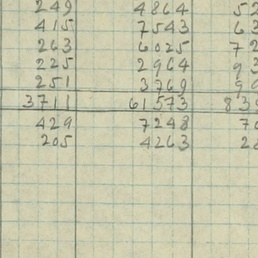 249 4864 52
415 7543 63
263 6025 72
225 2964 93
251 3769 99
3711 61573 839
429 7248 76
205 4263 28